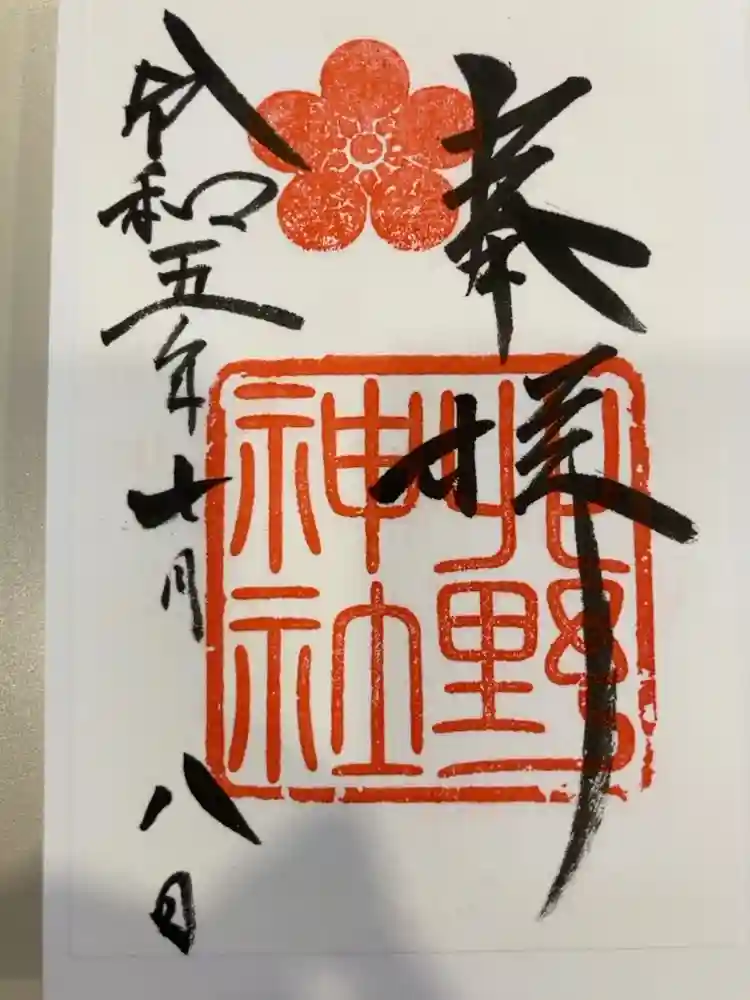 奉拝
北野
神社
令和五年七月八日